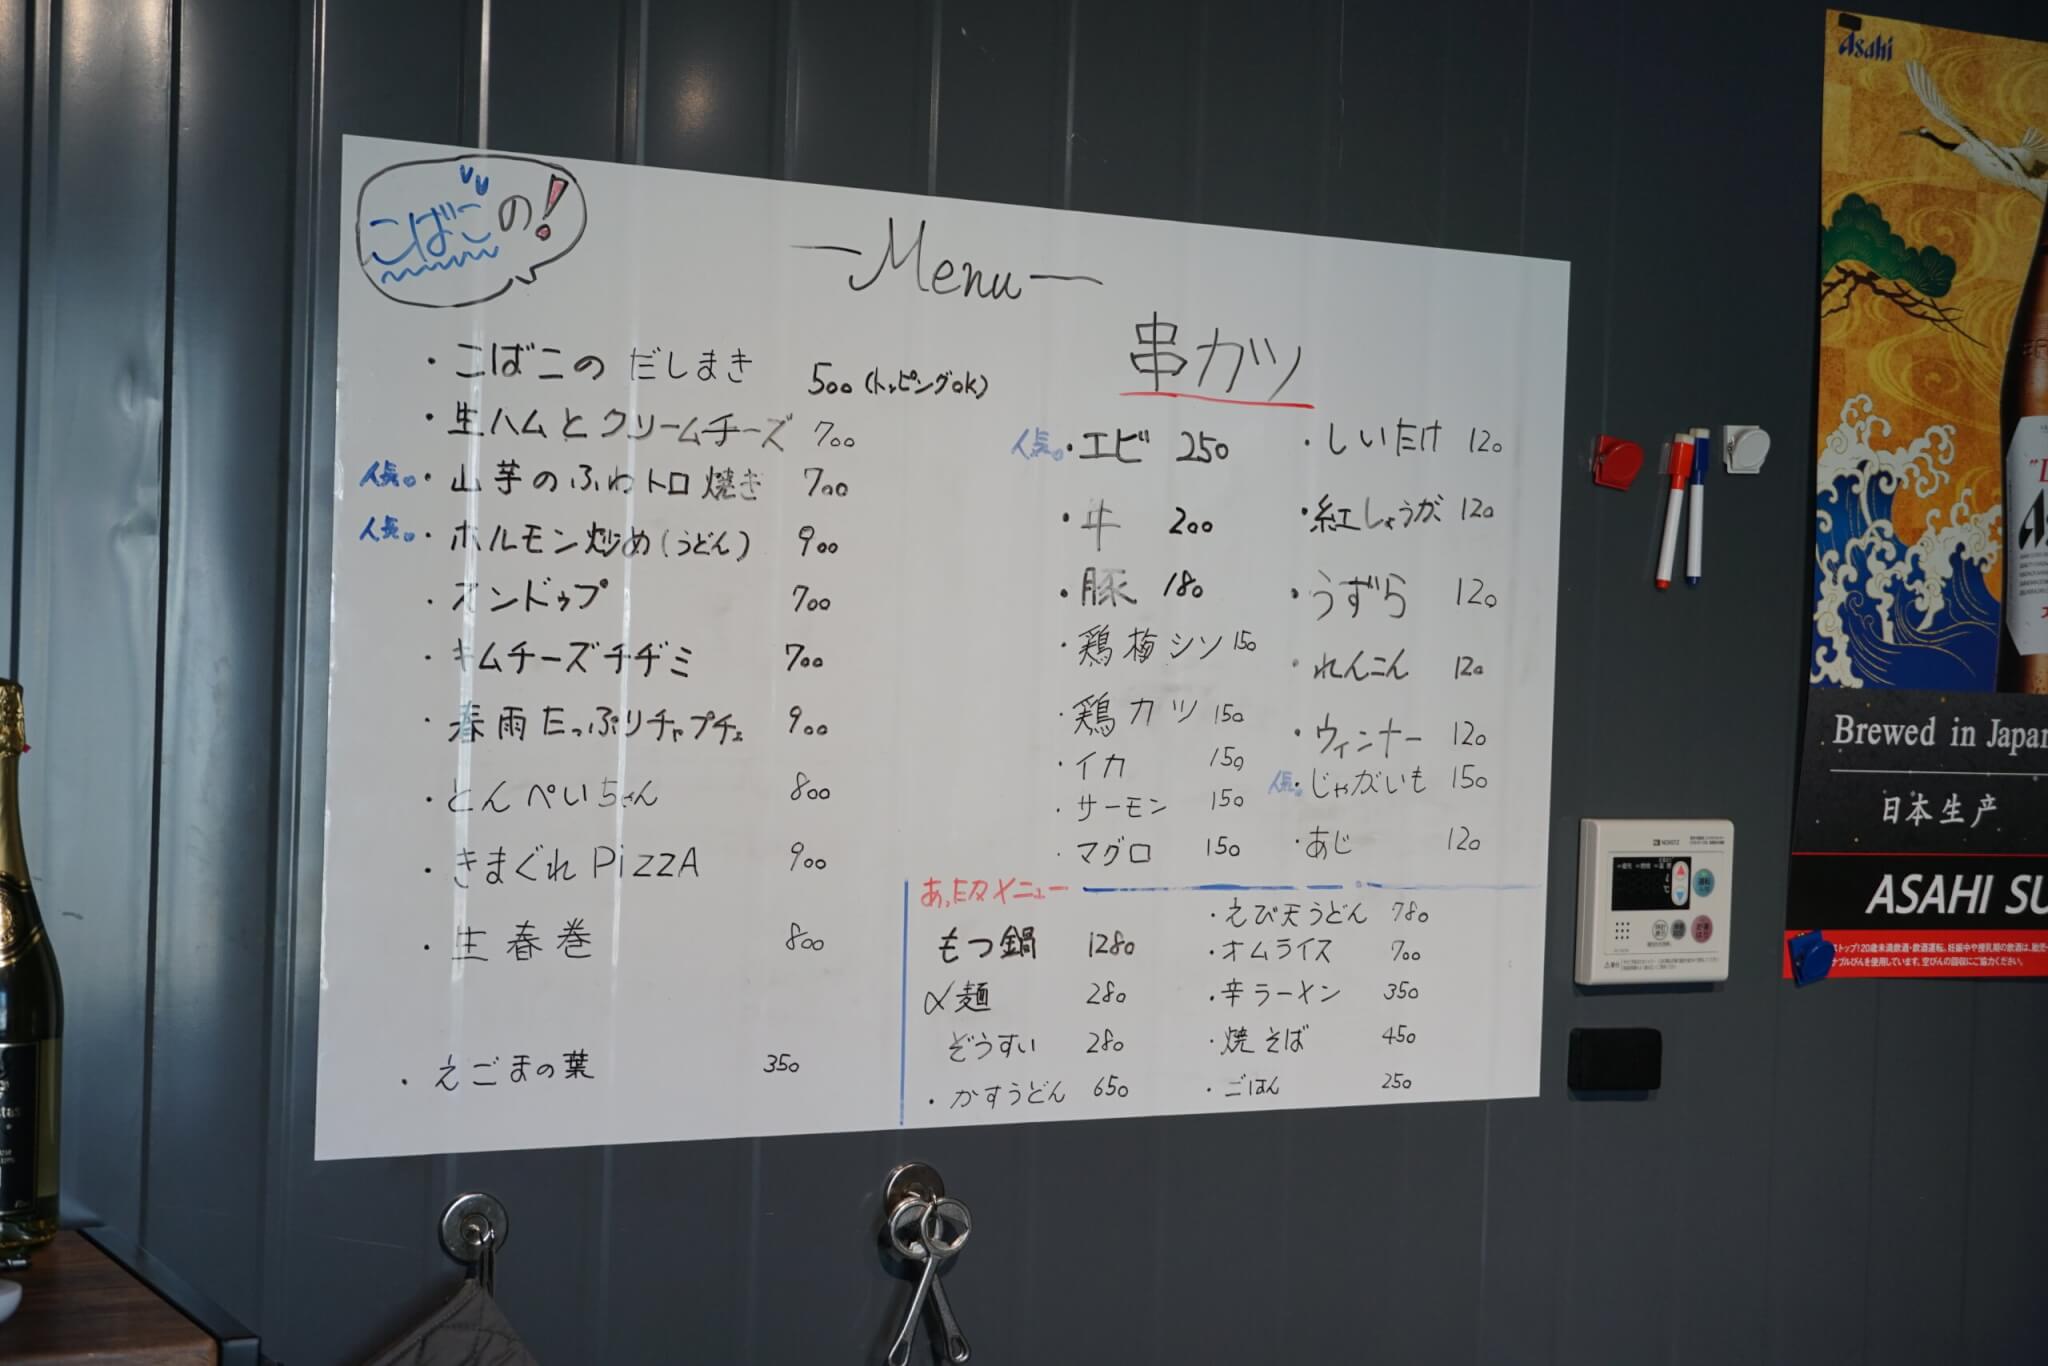 こばこの!
Menu
・こばこの だしまき 500(トッピングok)
・生ハムとクリームチーズ 700
人気。・山芋のふわトロ焼き 700
人気。・ホルモン炒め(うどん) 900
・スンドゥブ 700
・キムチーズチヂミ 700
・春雨たっぷりチャプチェ 900
・とんぺいちゃん 800
・きまぐれPizzA 900
・生春巻 800
・えごまの葉 350
串カツ
人気。・エビ 250
・牛 200
・豚 180
・鶏梅シソ 150
・鶏カツ 150
・イカ 150
・サーモン 150
・マグロ 150
・しいたけ 120
・紅しょうが 120
・うずら 120
・れんこん 120
・ウィンナー 120
人気。・じゃがいも 150
・あじ 120
あったかメニュー
もつ鍋 1280
〆麺 280
ぞうすい 280
・かすうどん 650
・えび天うどん 780
・オムライス 700
・辛ラーメン 350
・焼そば 450
・ごはん 250
NORITZ
Asahi
Brewed in Japan
日本生産
ASAHI SU
ストップ!20歳未満飲酒・飲酒運転。妊娠中や授乳期の飲酒は、胎児・
ナブルびんを使用しています。空びんの回収にご協力ください。